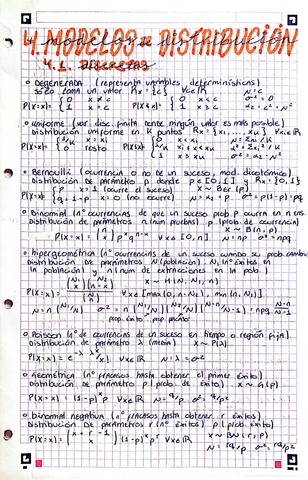 4. MODELOS DE DISTRIBUCIÓN
4.1. DISCRETAS
○ DEGENERADA (representa variables determinísticas)
Sólo toma un valor Rx = {c} ∀c∈ℝ μ = c
P(X=x) = {0 x≠c P(X≤x) = {0 x<c σ² = 0
1 x=c 1 x≥c
○ Uniforme (var disc. finita donde ningún valor es más posible)
Distribución uniforme en K puntos Rx = {x₁, ... xₖ} ∀xᵢ∈ℝ
P(X=x) = {1/K x=xᵢ
0 resto
1 x≥xₖ
○ Bernoulli (ocurrencia o no de un suceso, mod. dicotómico)
Distribución de parámetro p donde p∈[0,1] y Rx = {0,1}
P(X=x) = {p x=1 (ocurre el suceso) X~Ber(p)
q=1-p x=0 (no ocurre)
○ Binomial (nº ocurrencias de que un suceso prob p ocurra en n ens.
Distribución de parámetros n (num pruebas) p (prob. de ocurrencia)
X~B(n,p)
P(X=x) = (n x) pˣ qⁿ⁻ˣ ∀x∈[0,n] μ = np σ² = npq
○ Hipergeométrica (nº ocurrencias de un suceso cuando su prob cambia
Distribución de parámetros N (población), N₁ (nº éxitos en
la población) y n (num de extracciones en la pob.)
X~H(N, N₁, n)
○ Poisson (nº de ocurrencias de un suceso en tiempo o región fija)
Distribución de parámetro λ (media) X~P(λ)
P(X=x) = e^-λ λˣ/x! ∀x∈ℝ μ = λ = σ²
○ Geométrica (nº fracasos hasta obtener el primer éxito)
Distribución de parámetro p (prob. de éxito) X~G(p)
P(X=x) = (1-p)ˣ p ∀x∈ℝ μ = q/p σ² = q/p²
○ Binomial negativa (nº fracasos hasta obtener r éxitos)
Distribución de parámetros r (nº éxitos) p (prob. éxito)
P(X=x) = (x+r-1 x) (1-p)ˣ pʳ ∀x∈ℝ X~BN(r,p)
μ = rq/p σ² = rq/p²